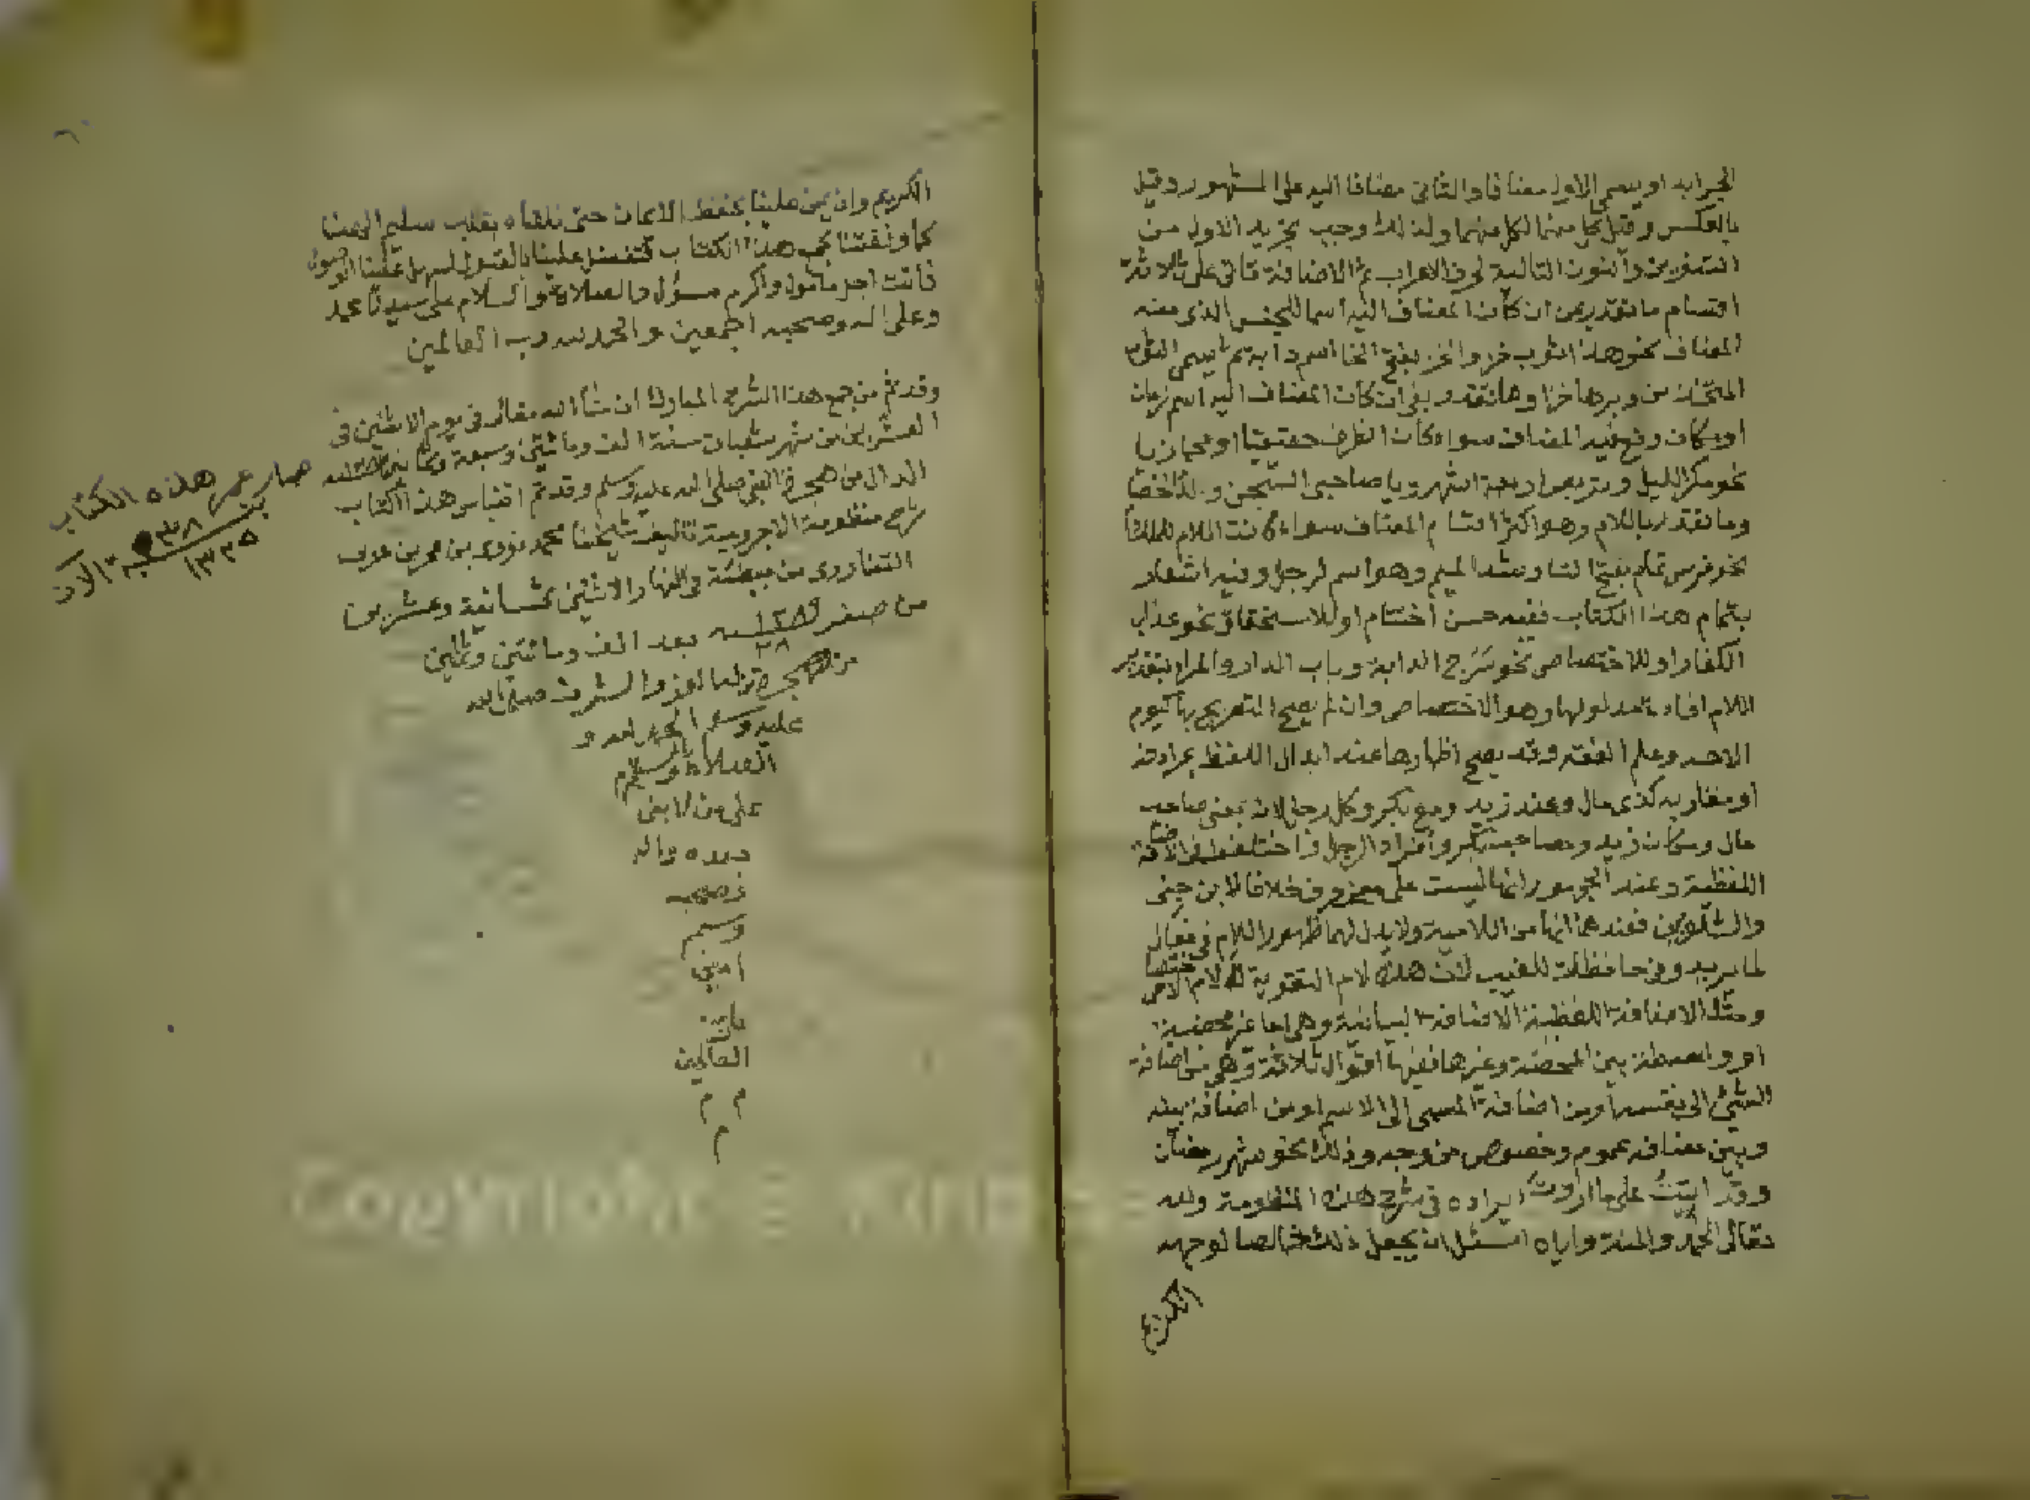 الجر ابدا ويسمى الاول مضافا والثاني مضافا اليه على المشهور وقيل
بالعكس وقيل كل منهما لكل منهما ولذلك وجب تجريد الاول من
التنوين والنون التالية لحرف الاعراب ثم الاضافة تاتي على ثلاثة
اقسام ما تقدر بمن ان كان المضاف اليه اسما للجنس الذي منه
المضاف نحو هذا ثوب خز والخز بفتح الخا اسم دابة ثم سمي الثوب
المتخذ من وبرها خزا وما تقدر بفي ان كان المضاف اليه اسم زمان
او مكان وقع فيه المضاف سواء كان الظرف حقيقيا او مجازيا
نحو مكر الليل وتربص اربعة اشهر ويا صاحبي السجن والد الخصا
وما تقدر باللام وهو اكثر اقسام المضاف سواء كانت اللام للملك
نحو فرس تمام بفتح التا وشد الميم وهو اسم لرجل وفيه اشعار
بتمام هذا الكتاب ففيه حسن اختتام او للاستحقاق نحو عذاب
الكفار او للاختصاص نحو سرج الدابة وباب الدار والمراد بتقدير
اللام افادة مدلولها وهو الاختصاص وان لم يصح التصريح بها كيوم
الاحد وعلم الفقه وقد يصح اظهارها عند ابدال اللفظ بمرادفه
او مقاربه كذي مال وعند زيد ومع بكر وكل رجل لان بمعنى صاحب
مال ومكان زيد ومصاحبة بكر وافراد الرجل واختلفوا في الاضافة
اللفظية وعند الجمهور انها ليست على معنى حرف خلافا لابن جني
والشلوبين فعندهما انها من اللامية ولا يدل لهما ظهور اللام في فعال
لما يريد وفي حافظات للغيب لان هذه لام التقوية لا لام الاختصاص
ومثل الاضافة اللفظية الاضافة البيانية وهل هما غير محضية
او واسطة بين المحضة وغيرها فيها اقوال ثلاثة وهي من اضافة
الشئ الى نفسه او من اضافة المسمى الى الاسم او من اضافة بينه
وبين مضافه عموم وخصوص من وجه وذلك نحو شهر رمضان
وقد اتيت على ما اردت ايراده في شرح هذه المنظومة ولله
تعالى الحمد والمنة واياه اسئل ان يجعل ذلك خالصا لوجهه
الكريم
الكريم وان يمن علينا بحفظ الايمان حتى نلقاه بقلب سليم الهنا
كما وفقتنا لجمع هذا الكتاب فتفضل علينا بالقبول لسهل علينا الوصول
فانت اجل مأمول واكرم مسؤل والصلاة والسلام على سيدنا محمد
وعلى اله وصحبه اجمعين والحمد لله رب العالمين
وقد تم من جمع هذا الشرح المبارك ان شاء الله تعالى في يوم الاثنين في
العشرين من شهر شعبان سنة الف ومائتين وسبعة وثمانين
الدال من هجرة النبي صلى الله عليه وسلم وقد تم اقتباس هذا الكتاب
شرح منظومة الاجرومية تاليف شيخنا محمد نووي بن عمر بن عربي
التناروي من صبيحة والنهار الاثنين ثمانية وعشرين
من صفر ١٢٨٩ سنه بعد الف ومائتين وثمانين
٢٨
من هجرة من له العز والشرف صلى الله
عليه وسلم الحمد لله و
الصلاة والسلام
على من لا نبي
بعده واله
وصحبه
وسلم
امين
يارب
العالمين
م م
م
صار عمر هذه الكتاب
٣٨
سنة الان
١٣٢٥